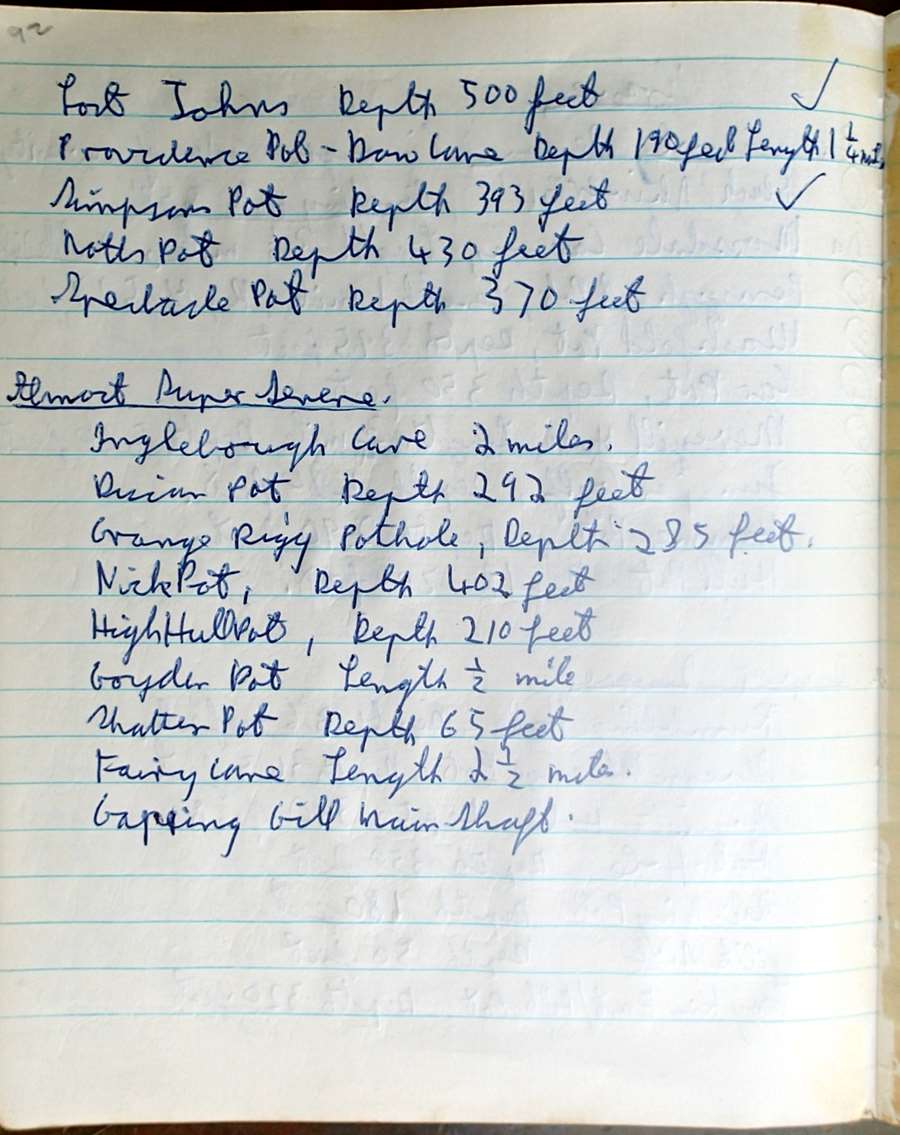 92
Lost Johns Depth 500 feet ✓
Providence Pot - Dow Cave Depth 190 feet Length 1 1/4 mls
Simpsons Pot Depth 393 feet ✓
Notts Pot Depth 430 feet
Spectacle Pot Depth 370 feet
Almost Super Severe.
Ingleborough Cave 2 miles.
Pot Depth 292 feet
Grange Rigg Pothole, Depth 285 feet.
Nick Pot, Depth 402 feet
High Hull Pot, Depth 210 feet
Goyder Pot Length 1/2 mile
Shatter Pot Depth 65 feet
Fairy Cave Length 2 1/2 miles.
Gapping Gill Main Shaft.